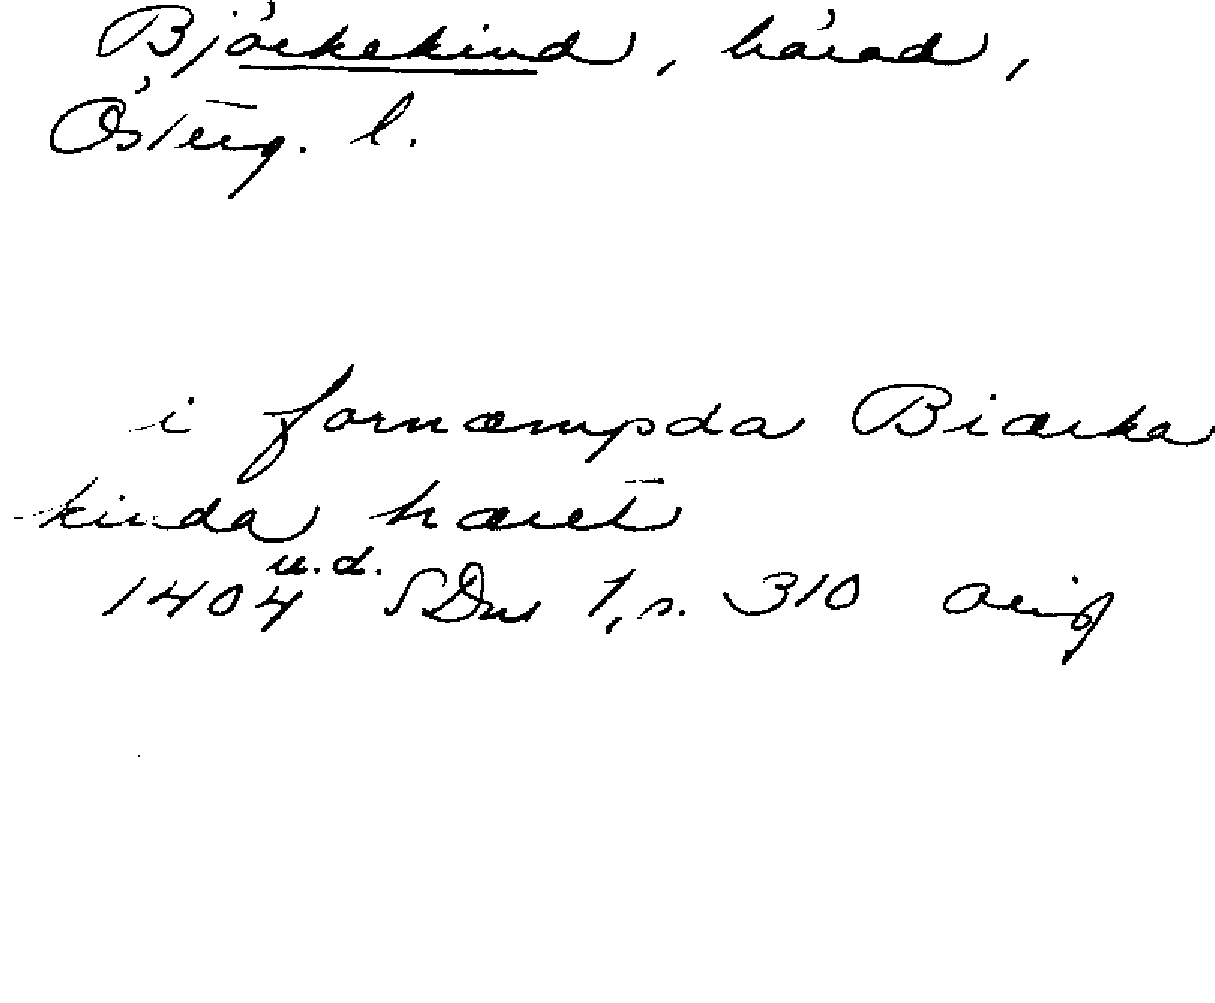 Björkekind, härad,
Österg. l.
i fornæmpda Biærka
-kinda hæret
1404 u.d. SDns 1, s. 310 orig